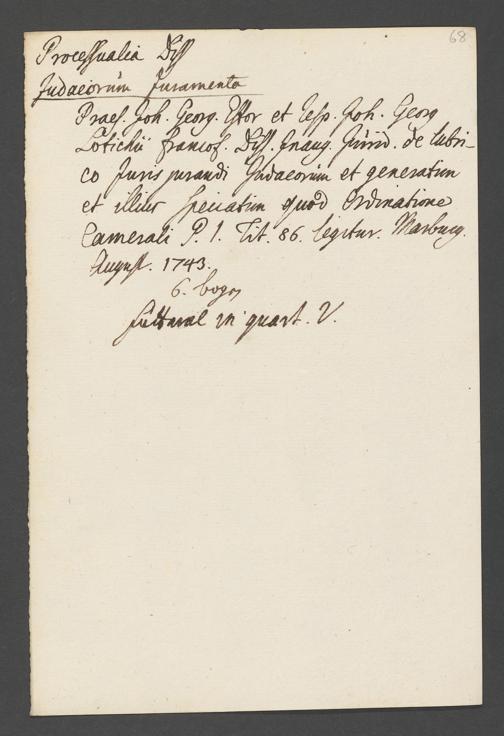 68
Processualia Diss
Judaeorum Juramento
Praes. Joh. Georg. Estor et Resp. Joh. Georg
Lotichii Francof. Diss. Inaug. Jurid. de lubri-
co Juris jurandi Judaeorum et generatim
et illius speciatim quod Ordinatione
Camerali P. 1. Tit. 86. legitur. Marburg.
August. 1743.
6. bogen
in quart. V.